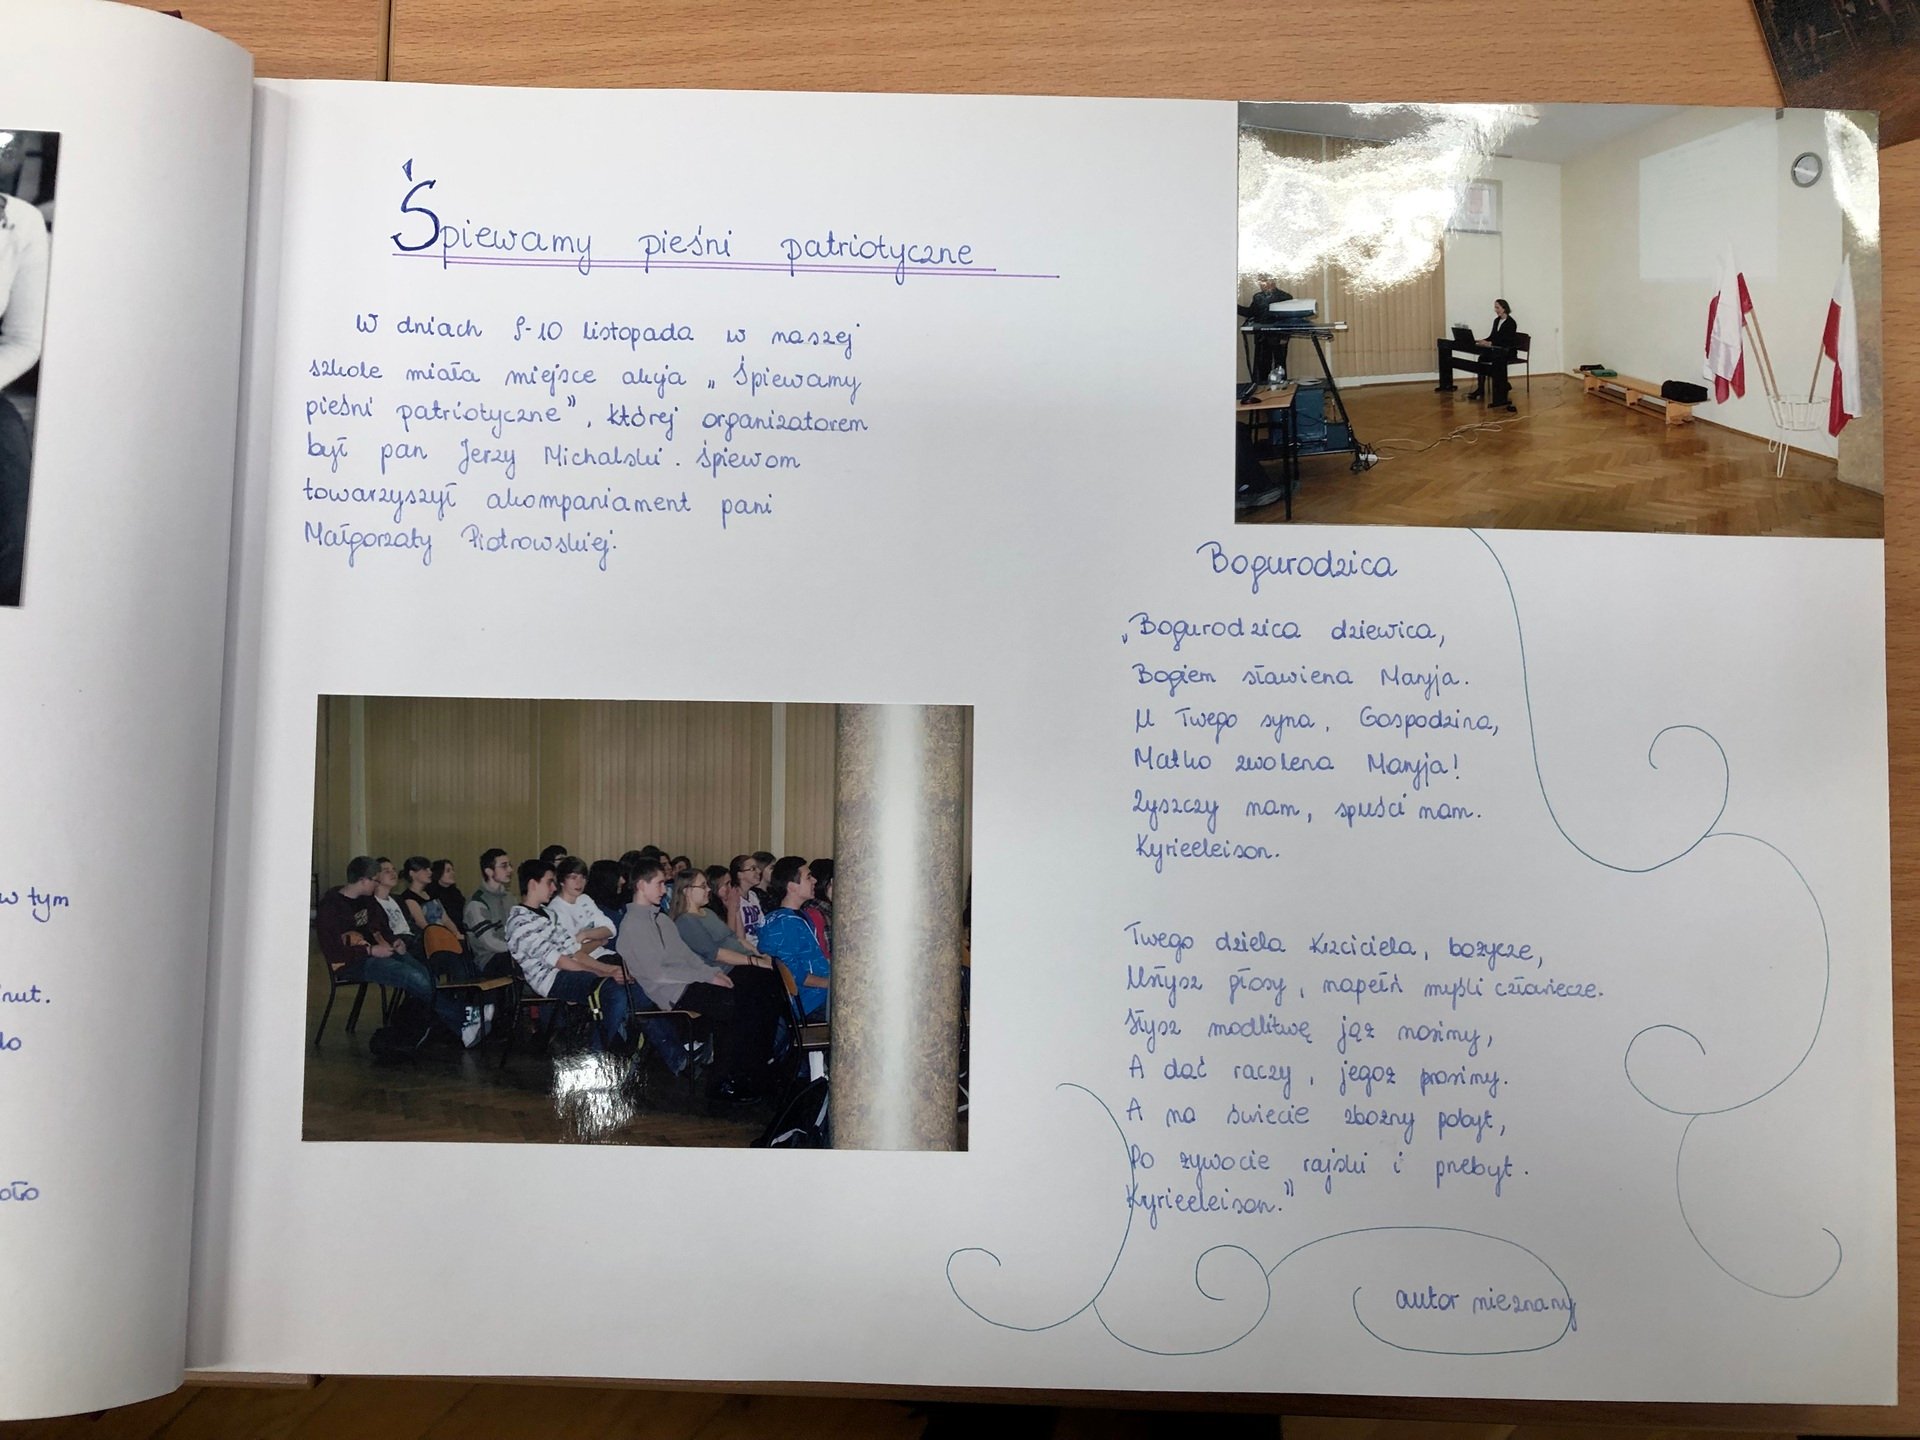 w tym
nut.
do
oło
Śpiewamy pieśni patriotyczne
W dniach 9-10 listopada w naszej
szkole miała miejsce akcja „Śpiewamy
pieśni patriotyczne", której organizatorem
był pan Jerzy Michalski. Śpiewom
towarzyszył akompaniament pani
Małgorzaty Piotrowskiej.
Bogurodzica
„Bogurodzica dziewica,
Bogiem sławiena Maryja.
U Twego syna, Gospodzina,
Matko zwolena Maryja!
Zyszczy nam, spuści nam.
Kyrieeleison.
Twego dziela Krzciciela, bożycze,
Usłysz głosy, napełń myśli człowiecze.
Słysz modlitwę jąż nosimy,
A dać raczy, jegoż prosimy.
A na świecie zbożny pobyt,
Po żywocie rajski i przebyt.
Kyrieeleison."
autor nieznany